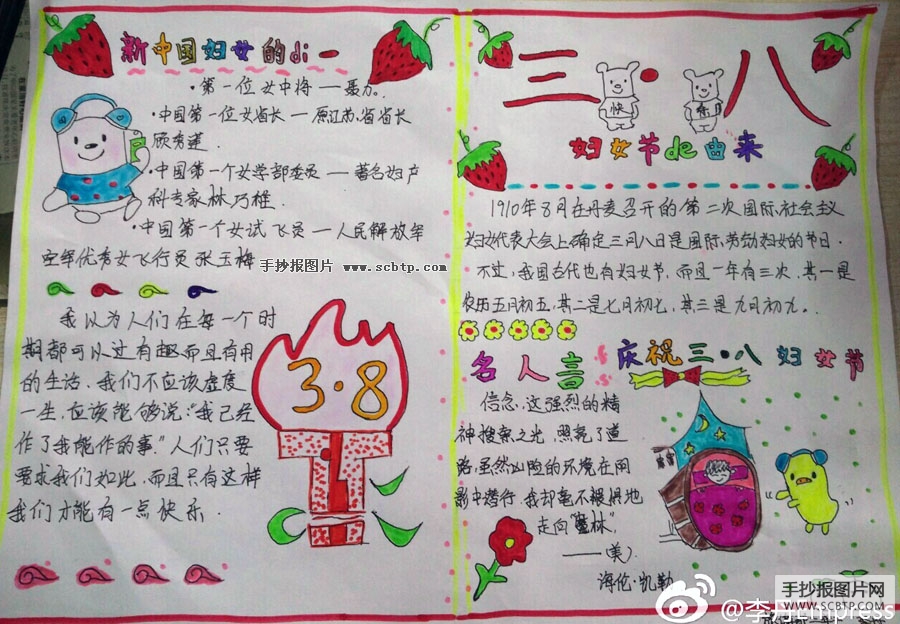 新中国妇女的di一
·第一位女中将——聂力.
·中国第一位女省长——原江苏省省长
顾秀莲
·中国第一个女学部委员——著名妇产
科专家林巧稚.
·中国第一个女试飞员——人民解放军
空军优秀女飞行员张玉梅
手抄报图片 www.scbtp.com
我以为人们在每一个时
期都可以过有趣而且有用
的生活.我们不应该虚度
一生,应该能够说:"我已经
作了我能作的事."人们只要
要求我们如此,而且只有这样
我们才能有一点快乐.
3·8
三·八
快 乐
妇女节de由来
1910年8月在丹麦召开的第二次国际社会主义
妇女代表大会上确定三月八日是国际劳动妇女的节日.
不过,我国古代也有妇女节,而且一年有三次,其一是
农历五月初五,其二是七月初七,其三是九月初九.
名人言
庆祝三·八妇女节
信念,这强烈的精
神搜索之光,照亮了道
路,虽然凶险的环境在阴
影中潜行,我却毫不畏惧地
走向"魔林".
——(美)
海伦·凯勒
手抄报图片网
WWW.SCBTP.COM